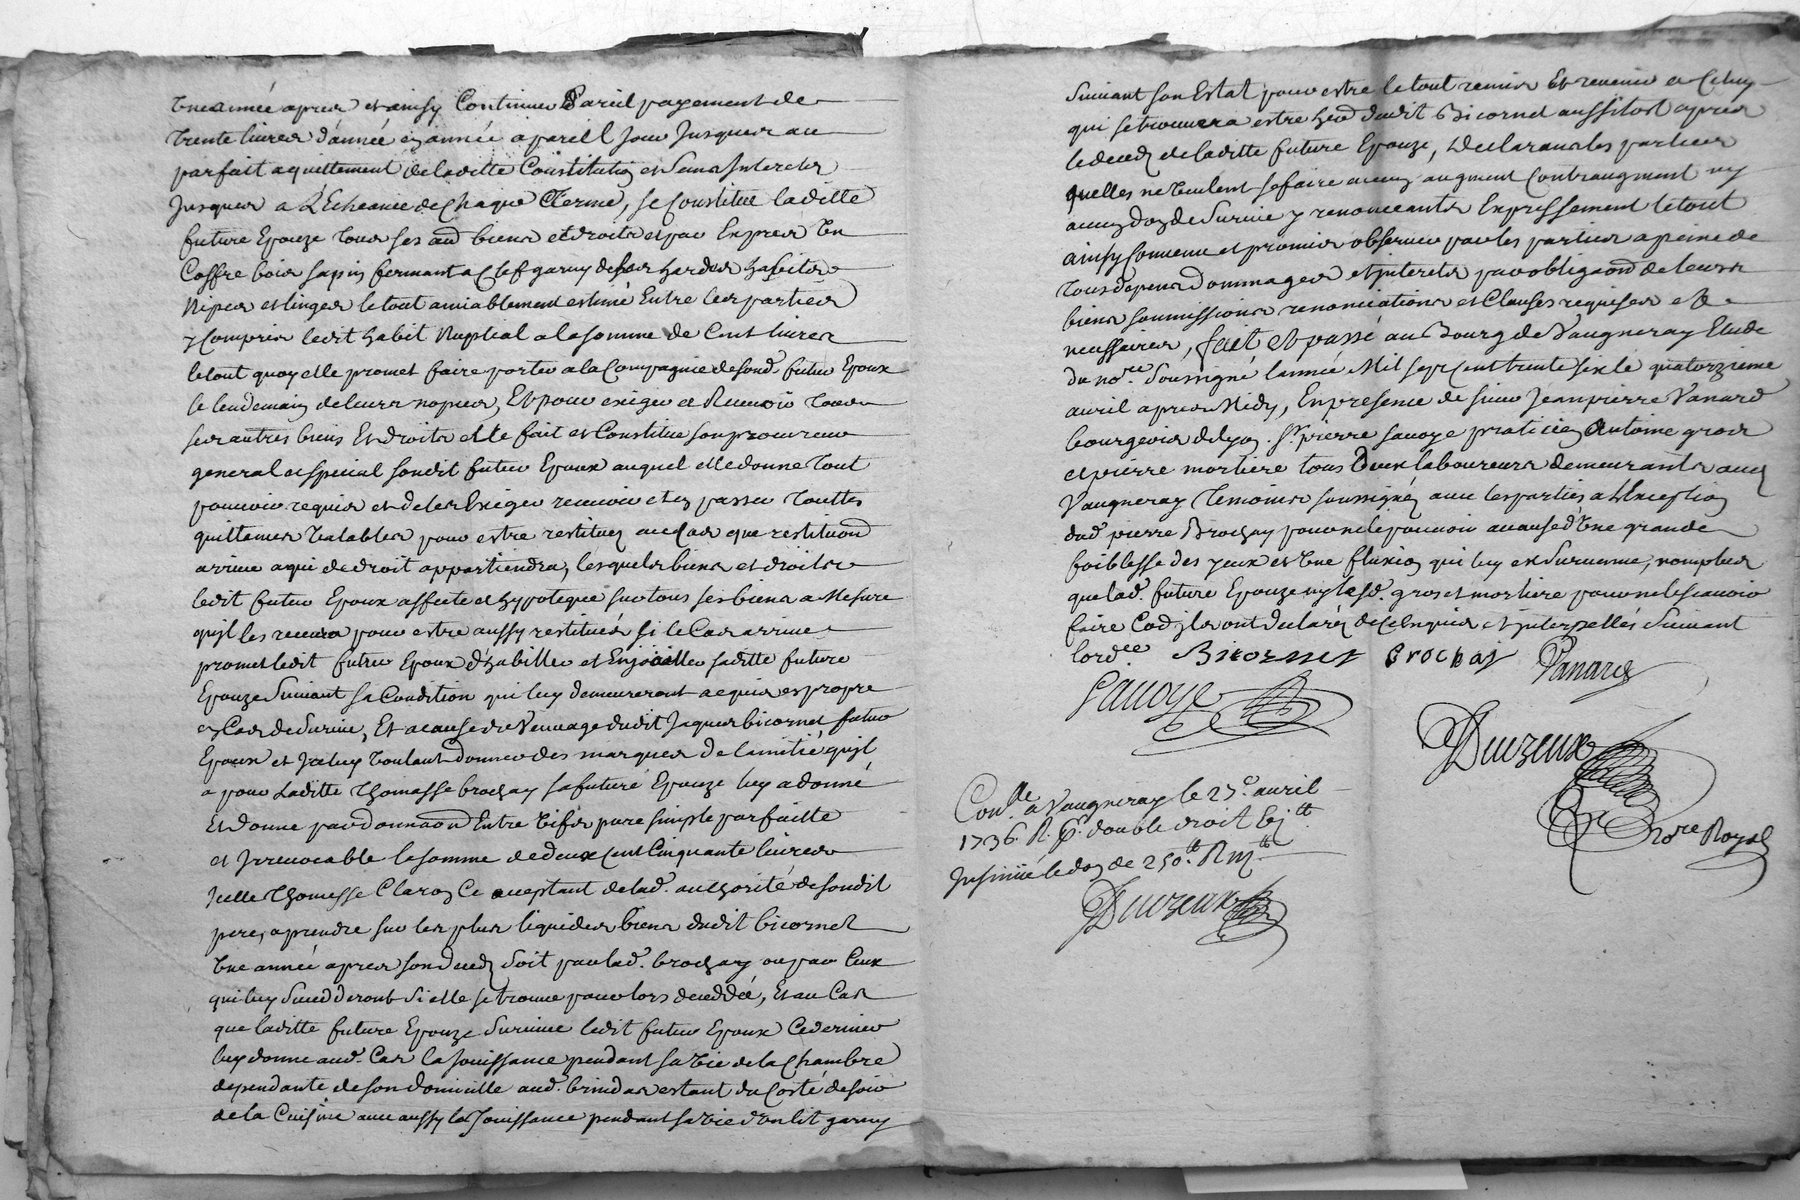 Une année apres et ainsy Continuer Pareil payement de
trente livres d'année en année a pareil Jour Jusques au
parfait aquittement de laditte Constitution et sans Interets
Jusques a L'Echeance de Chaque Terme, se Constitue laditte
future Epouze tous ses aud biens et droits et par Expres Un
Coffre bois sapin fermant a Clef garny de ses hardes habits
Nipes et linges le tout amiablement estimé Entre les parties
y Compris ledit habit Nuptial a la somme de Cent livres
le tout quoy elle promet faire porter a la Compagnie de sond. futur Epoux
le lendemain de leurs nopces, Et pour exiger et Recevoir tous
ses autres biens Et droits elle fait et Constitue son procureur
general et special sondit futur Epoux auquel elle donne tout
pouvoir requis et de les Exiger recevoir et en passer touttes
quittances Valables pour estre restituez au Cas que restituon
arrive a qui de droit appartiendra, lesquels biens et droits
ledit futur Epoux affecte et hypoteque sur tous ses biens a Mesure
qu'jl les recevra pour estre aussy restitués si le Cas arrive
promet ledit futur Epoux d'habiller et Enjoailler saditte future
Epouze Suivant sa Condition qui luy demeureront acquis et propre
en Cas de Survie, Et a cause de Veuvage dudit Jaques bicornet futur
Epoux et Jceluy Voulant donner des marques de l'amitié qu'jl
a pour Laditte Thomasse brochay sa future Epouze luy a donné
Et donne par donnaon Entre Vifs pure simple parfaitte
et Jrrevocable la somme de deux Cent Cinquante livres
Jcelle Thomasse Claron Ce aceptant de lad. authorité de sondit
pere, a prendre sur les plus liquides biens dudit bicornet
Une année apres son deced soit par lad. brochay ou par Ceux
qui luy Succedderont si elle se trouve pour lors deceddée, Et au Cas
que laditte future Epouze Survive ledit futur Epoux Ce dernier
luy donne aud. Cas la Jouissance pendant sa vie de la Chambre
dependante de son domicille aud. brindas estant du Costé de soir
de la Cuisine avec aussy la Jouissance pendant sa vie d'un lit garny
Suivant son Estat pour estre le tout remis Et revenir a Celuy
qui se trouvera estre here dudit Bicornet aussitost apres
le deced de laditte future Epouze, Declarant les parties
quelles ne Veulent se faire aucun augment Contraugment ny
aucun don de Survie y renonceants Expressement le tout
ainsy Convenu et promis observer par les parties a peine de
tous depens Dommages et interets par obligaond de leurs
biens soumissions renonciations et Clauses requises et
necessaires, fait Et passé au Bourg de Vaugneray Etude
du nore. Soussigné l'année Mil sept Cent trente six le quatorzieme
avril apres Midy, En presence de sieur Jean pierre Vanard
bourgeois de lyon. Sr. pierre savoye praticien Antoine gros
et pierre mortiere tous Deux laboureurs demeurants aud
Vaugneray Temoins soussignéz avec les parties a L'Exception
dud. pierre Brochay pour ne le pouvoir a cause d'Une grande
foiblesse des yeux et Une fluxion qui luy est Survenue, non plus
que lad. future Epouze ny lesd. gros et mortiere pour ne le scavoir
faire Co'djls ont declaréz de Ce Enquis et jnterpellés Suivant
lordce. Bicornet Brochay Vanard
Savoye
Duvzeux
Nore Royal
Conlle a Vaugneray le 27e. avril
1736. R. double droit
Insinué le don de 250tt. R
Duvzeux